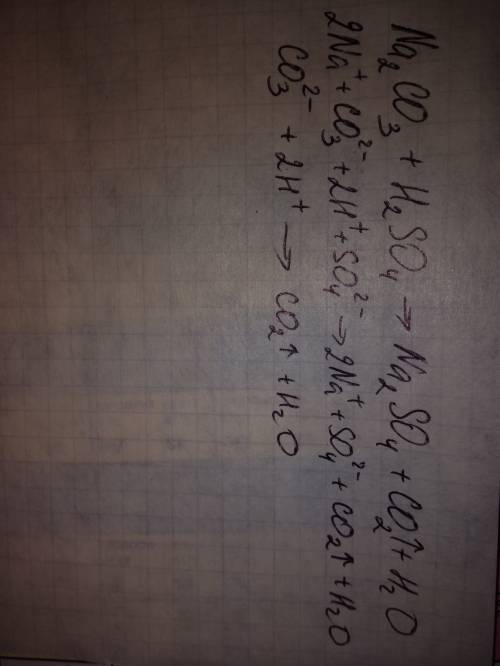 Na₂CO₃ + H₂SO₄ → Na₂SO₄ + CO₂↑ + H₂O
2Na⁺ + CO₃²⁻ + 2H⁺ + SO₄²⁻ → 2Na⁺ + SO₄²⁻ + CO₂↑ + H₂O
CO₃²⁻ + 2H⁺ → CO₂↑ + H₂O